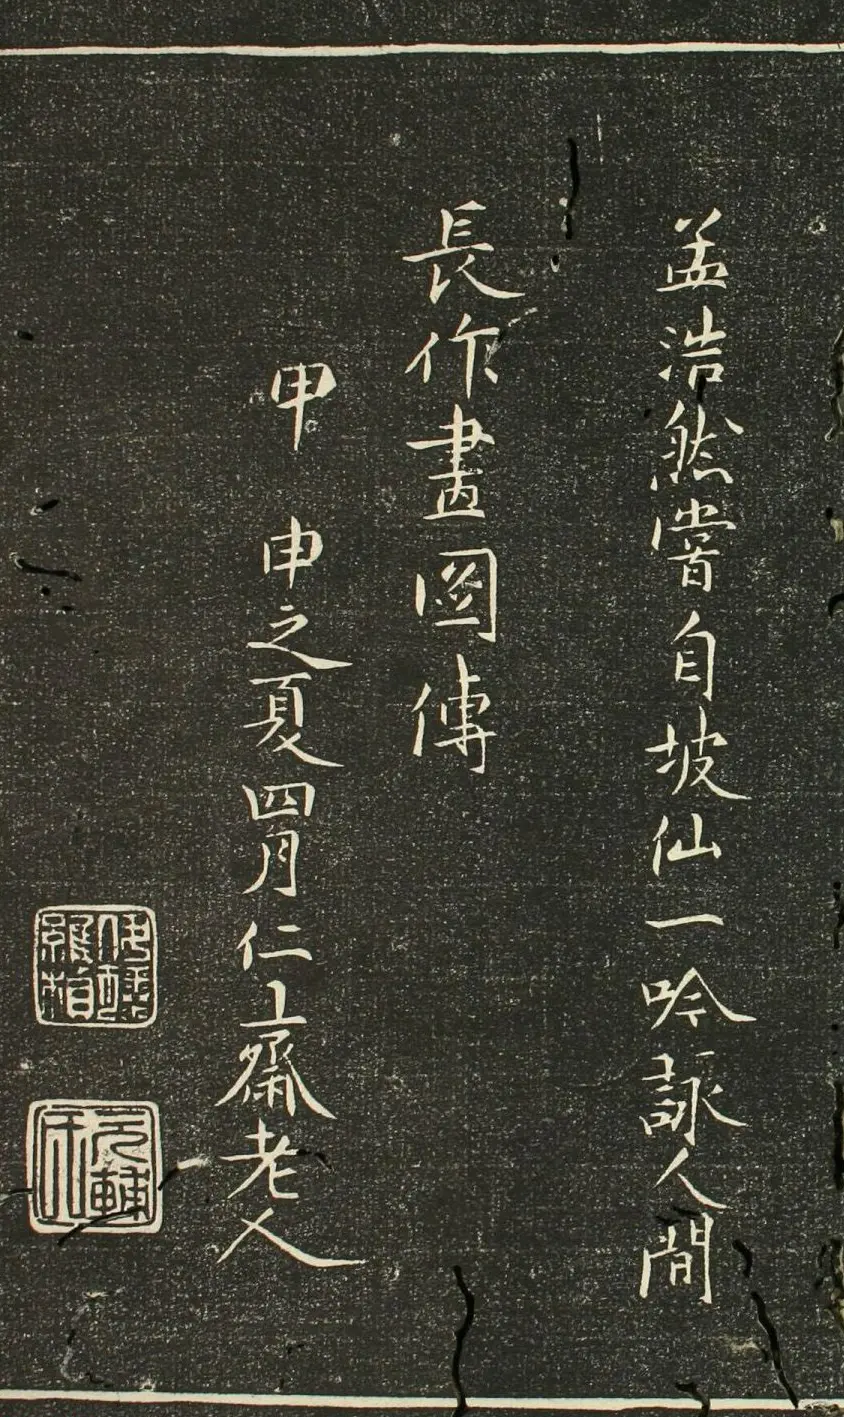 孟浩然嘗自坡仙一吟詠人間
長作畫圖傳
甲申之夏四月仁上齋老人
元輔